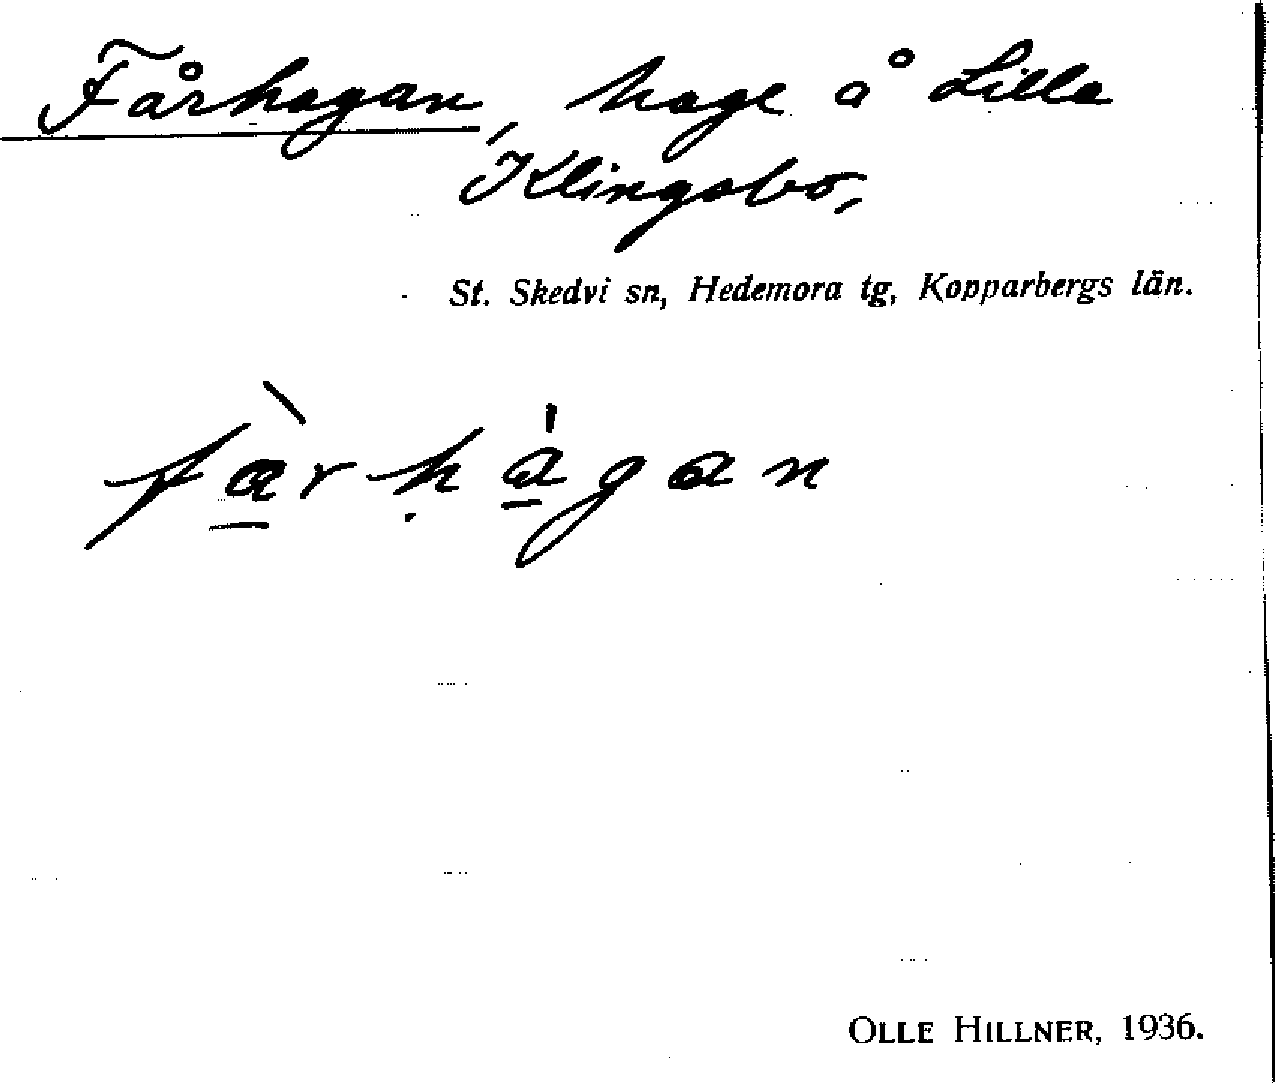 Fårhagan, hage å Lilla
Klingsbo,
St. Skedvi sn, Hedemora tg, Kopparbergs län.
fàrhágan
OLLE HILLNER, 1936.